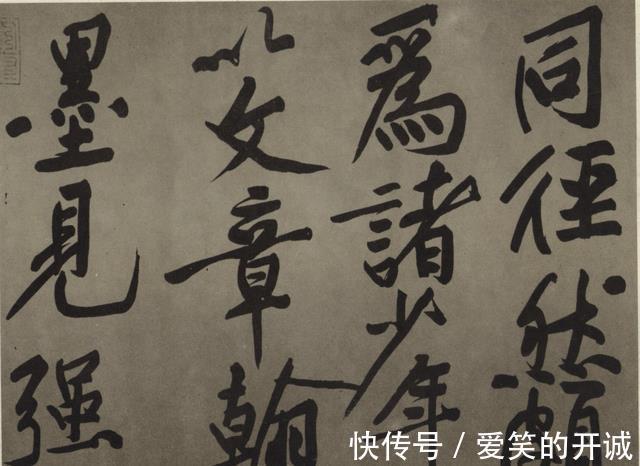 同徑然頗
為諸少年
以文章翰
墨見强
快传号 / 爱笑的开诚